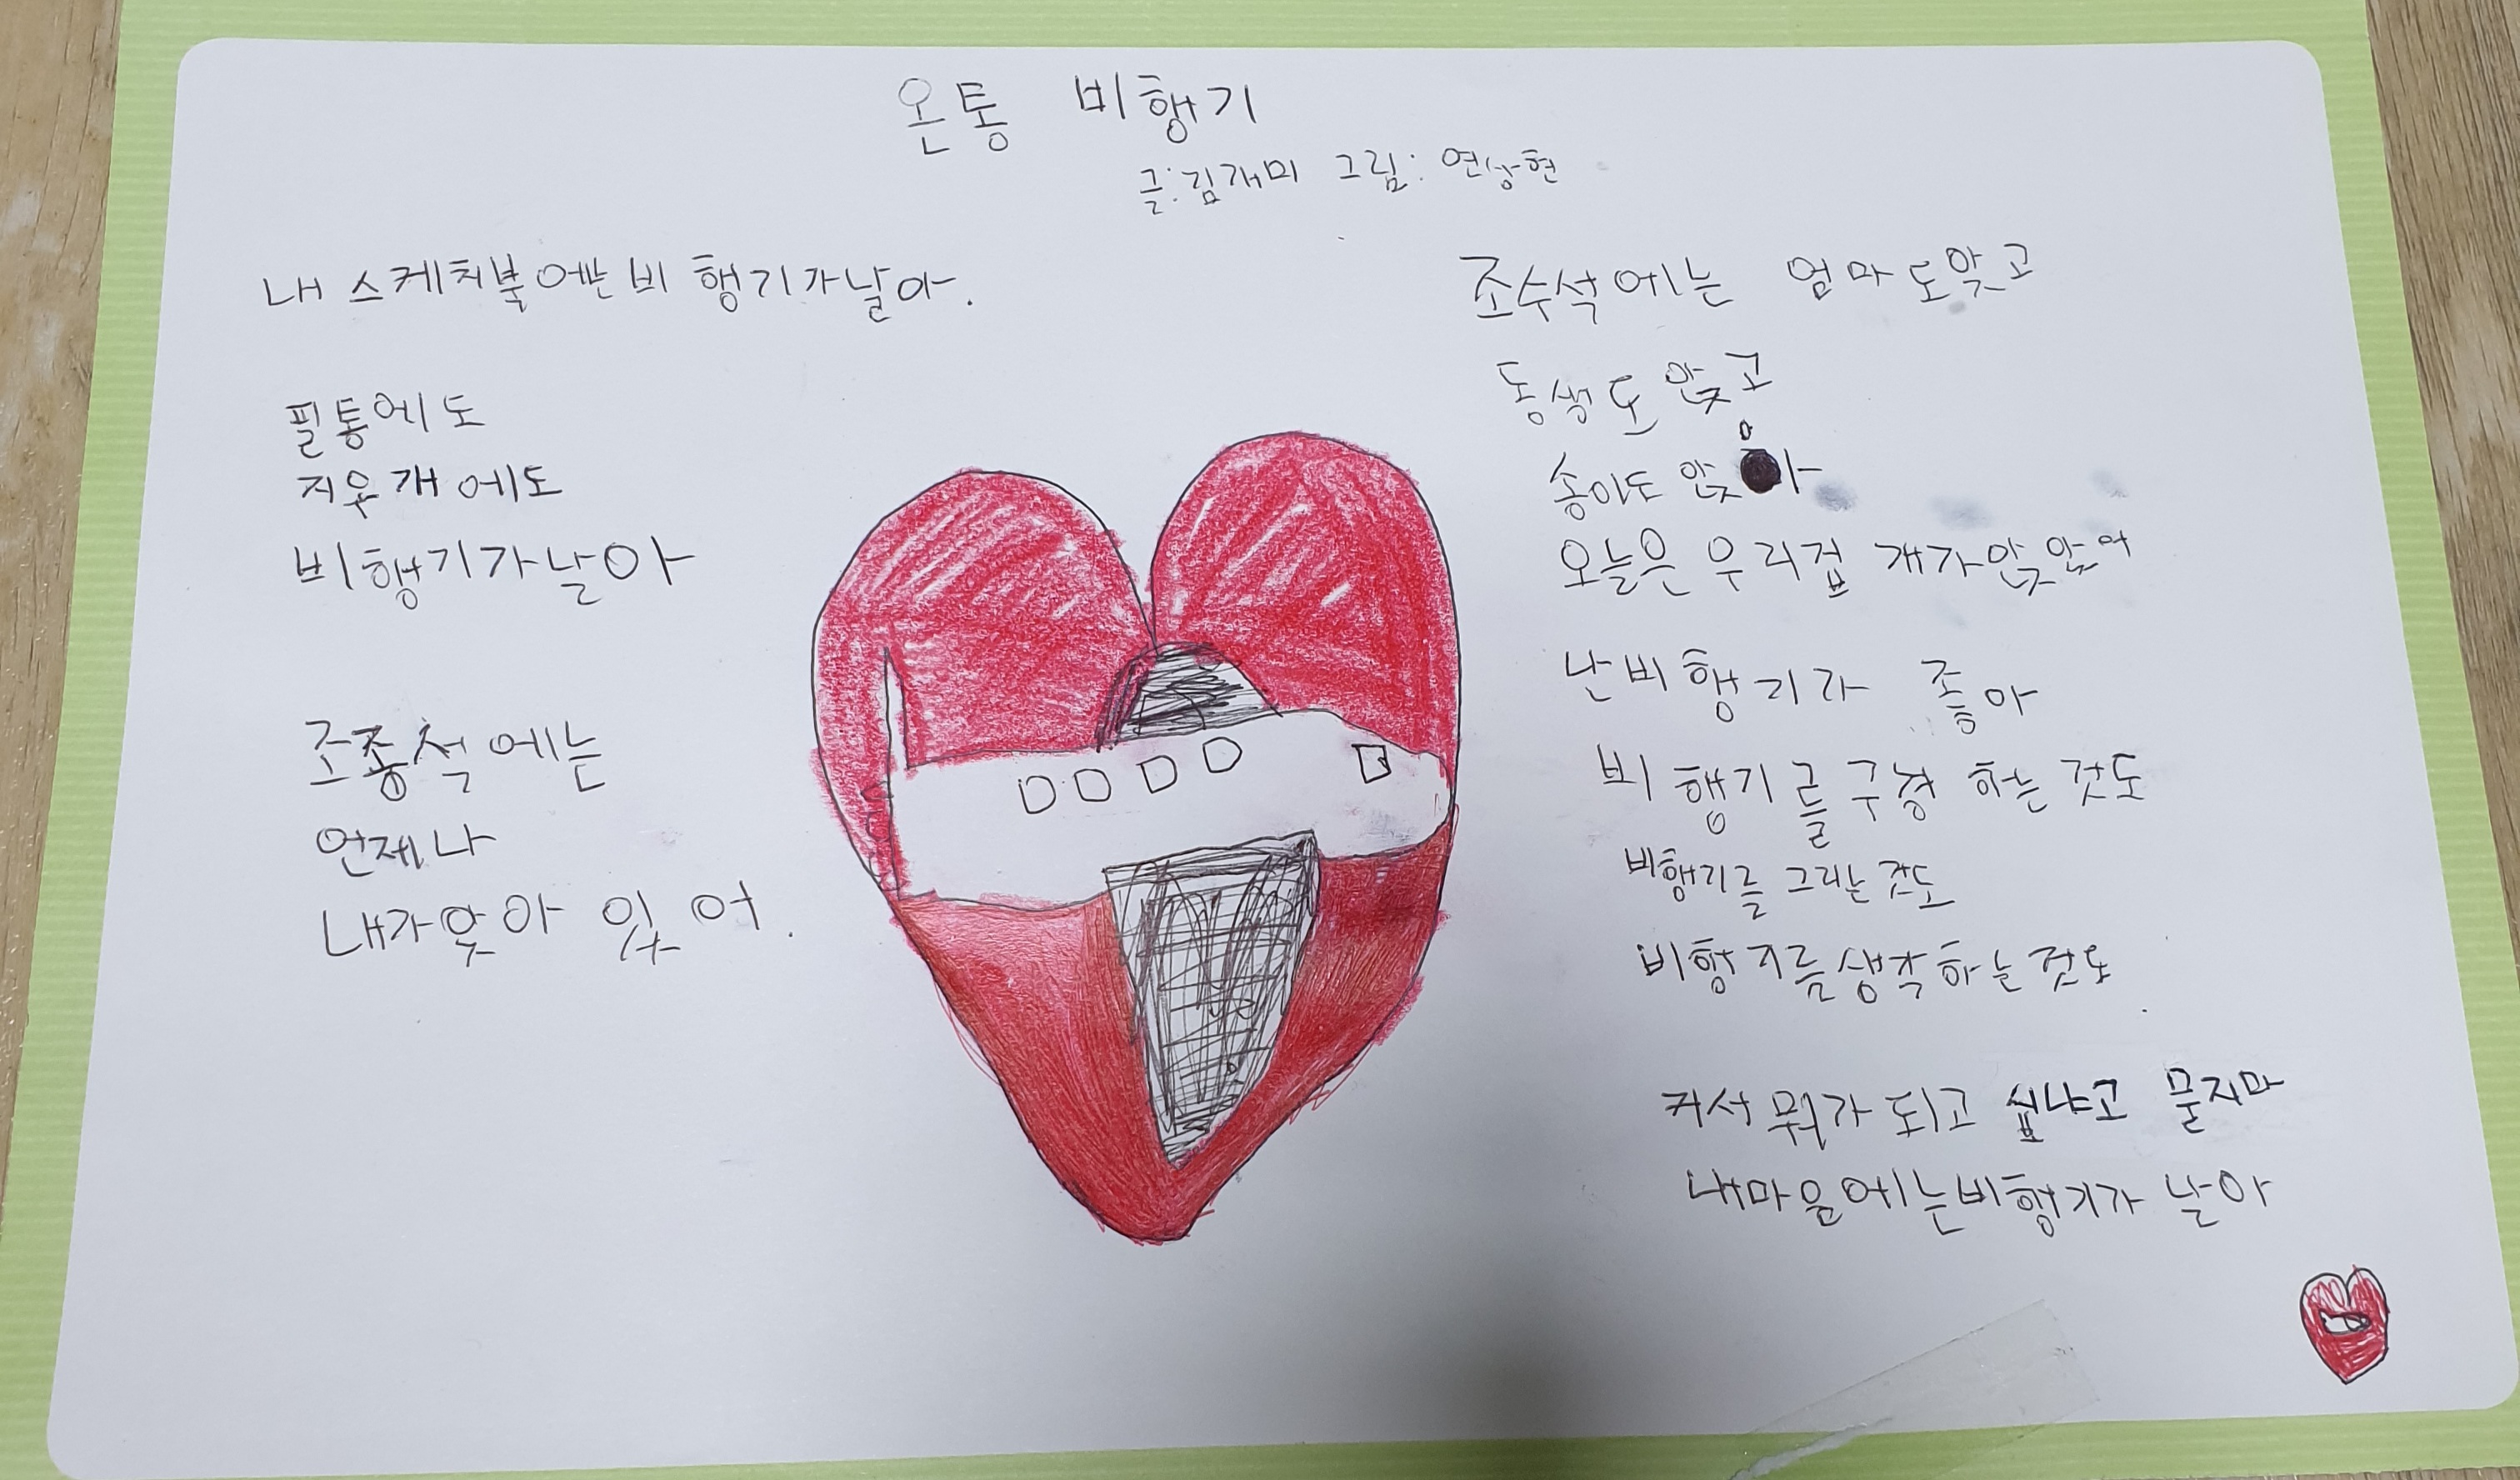 온통 비행기
글:김개미 그림: 연상현
내 스케치북에는 비행기가날아.
필통에도
지우개에도
비행기가날아
조종석에는
언제나
내가앚아 있어.
조수석에는 엄마도앚고
동생도 앉고
송이도 앉아
오늘은 우리집 개가 앉았어
난비행기가 좋아
비행기를 구경 하는 것도
비행기를 그리는 것도
비행기를생각하는것도
커서 뭐가 되고 싶냐고 묻지마
내마음에는비행기가 날아